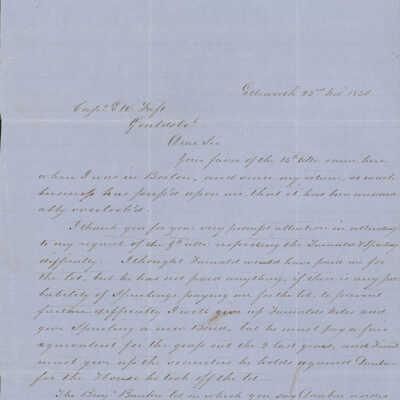 Ellsworth 22nd Nov 1850
Capt. R. W. Taft
Gouldsbo.
Dear Sir
Your favor of the 15th ulto came here
when I was in Boston, and since my return so much
business has press'd upon me that it has been unavoid
ably overlook'd.
I thank you for your very prompt attention in attending
to my request of the 9th ulto respecting the Furnald & Sperling
difficulty. I thought Furnald would have paid me for
the lot, but he has not paid anything, if there is any pro
bability of Sperlings paying me for the lot, to prevent
further difficulty I will give up Furnalds Notes and
give Sperling a new Bond, but he must pay a fair
equivalent for the grass cut the 2 last years, and
must give up the he holds against
for the House he took off the lot
The Benj. lot on which you say